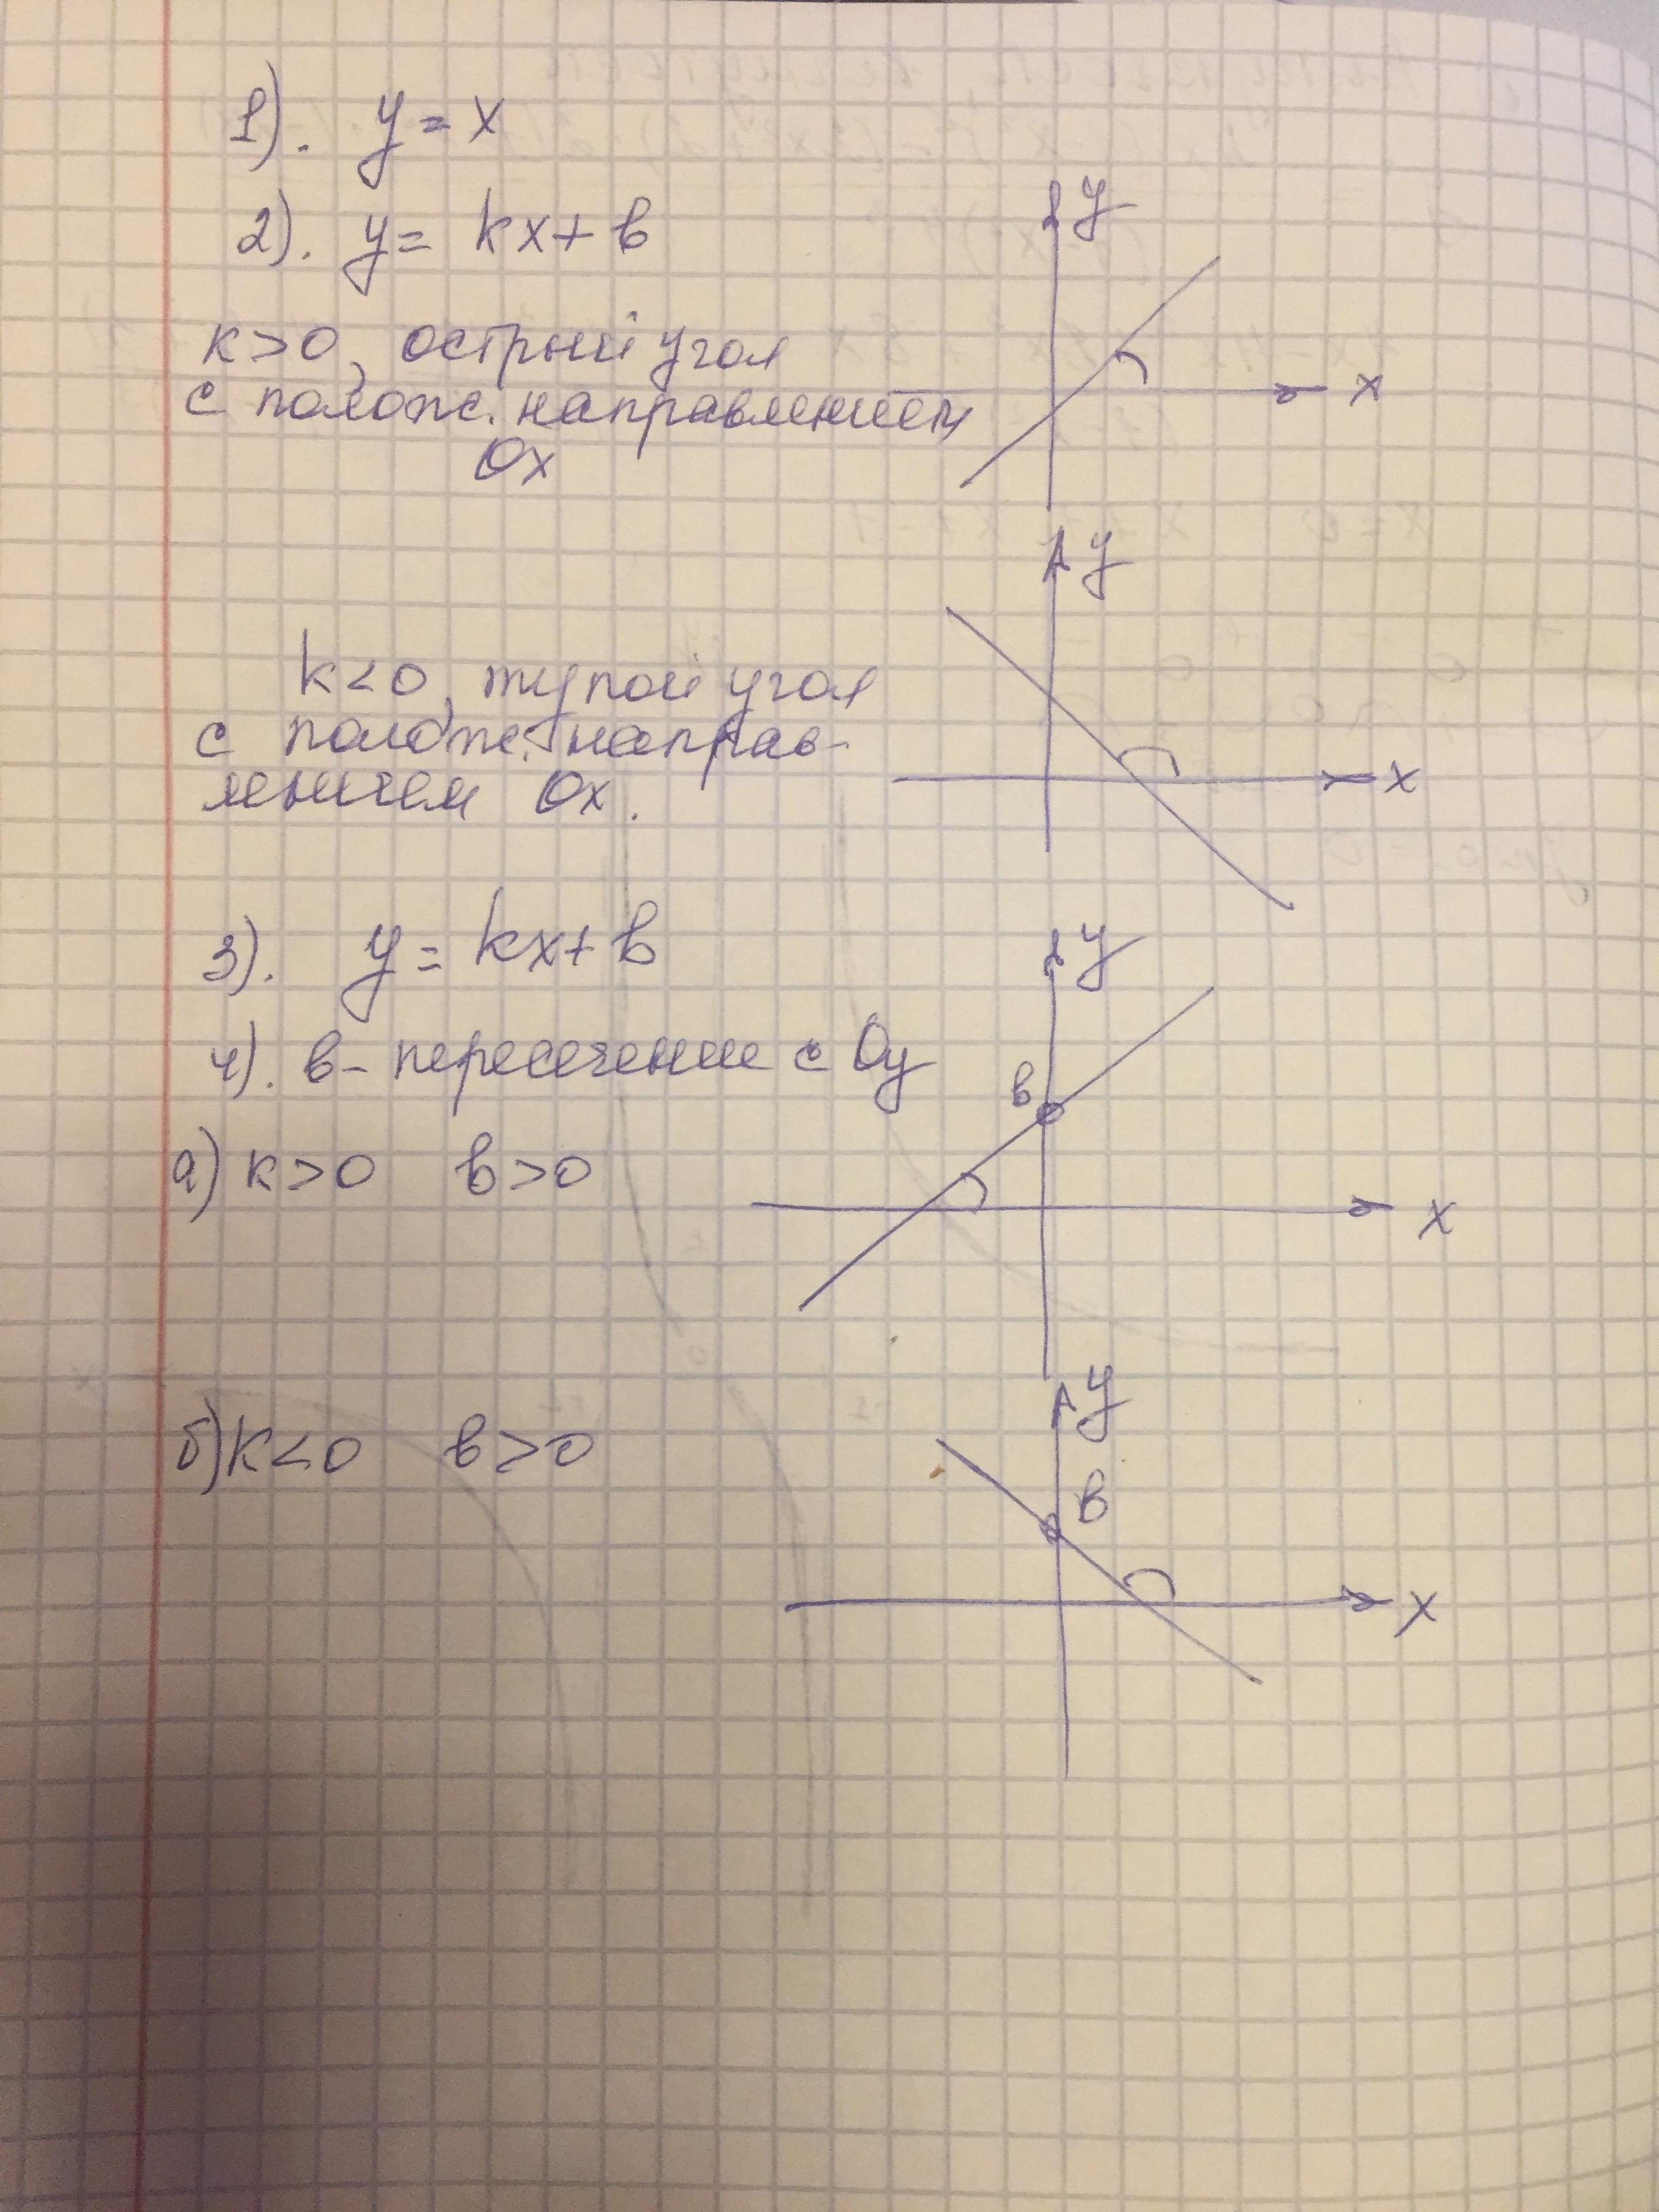 1). y = x
2). y = kx + b
y
k>0, острый угол
с полож. направлением
x
Ox
y
k<0, тупой угол
с полож. направ-
лением Ox.
x
3). y = kx + b
y
4). в - пересечение с Oy
в
а) k>0 b>0
x
y
б) k<0 b>0
в
x